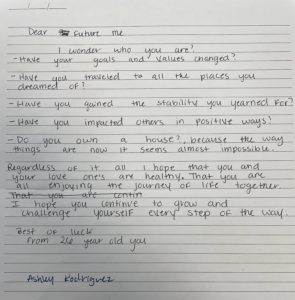 Dear Future me
I wonder who you are?
- Have your goals and values changed?
- Have you traveled to all the places you
dreamed of?
- Have you gained the stability you yearned for?
- Have you impacted others in positive ways?
- Do you own a house?, because the way
things are now it seems almost impossible.
Regardless of it all I hope that you and
your love one's are healthy. That you are
all enjoying the journey of life together.
That you are contin
I hope you continue to grow and
challenge yourself every step of the way.
Best of luck
From 26 year old you
Ashley Rodriguez